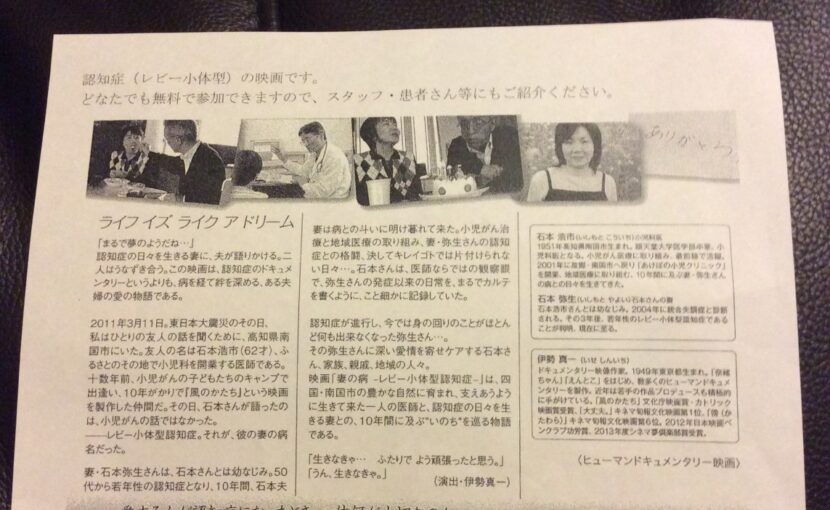 認知症（レビー小体型）の映画です。
どなたでも無料で参加できますので、スタッフ・患者さん等にもご紹介ください。
ありがとう
ライフ イズ ライク ア ドリーム
「まるで夢のようだね…」
認知症の日々を生きる妻に、夫が語りかける。二
人はうなずき合う。この映画は、認知症のドキュメ
ンタリーというよりも、病を経て絆を深める、ある夫
婦の愛の物語である。
2011年3月11日。東日本大震災のその日、
私はひとりの友人の話を聞くために、高知県南
国市にいた。友人の名は石本浩市（62才）、ふ
るさとのその地で小児科を開業する医師である。
十数年前、小児がんの子どもたちのキャンプで
出逢い、10年がかりで『風のかたち』という映画
を製作した仲間だ。その日、石本さんが語ったの
は、小児がんの話ではなかった。
――レビー小体型認知症。それが、彼の妻の病
名だった。
妻・石本弥生さんは、石本さんとは幼なじみ。50
代から若年性の認知症となり、10年間、石本夫
妻は病との斗いに明け暮れて来た。小児がん治
療と地域医療の取り組み、妻・弥生さんの認知
症との格闘、決してキレイゴトでは片付けられな
い日々…。石本さんは、医師ならではの観察眼
で、弥生さんの発症以来の日常を、まるでカルテ
を書くように、こと細かに記録していた。
認知症が進行し、今では身の回りのことがほとん
ど何も出来なくなった弥生さん…。
その弥生さんに深い愛情を寄せケアする石本さ
ん、家族、親戚、地域の人々。
映画「妻の病 -レビー小体型認知症-」は、四
国・南国市の豊かな自然に育まれ、支えあうよう
に生きて来た一人の医師と、認知症の日々を生
きる妻との、10年間に及ぶ“いのち”を巡る物語
である。
「生きなきゃ… ふたりで よう頑張ったと思う。」
「うん、生きなきゃ。」
（演出・伊勢真一）
石本 浩市(いしもと こういち)小児科医
1951年高知県南国市生まれ。順天堂大学医学部卒業。小
児科医となる。小児がん医療に取り組み、最前線で活躍。
2001年に故郷・南国市へ戻り「あけぼの小児クリニック」
を開業、地域医療に取り組む。10年間に及ぶ妻・弥生さん
の病との日々を生きてきた。
石本 弥生(いしもと やよい)石本さんの妻
石本浩市さんとは幼なじみ。2004年に統合失調症と診断
される。その3年後、若年性のレビー小体型認知症である
ことが判明、現在に至る。
伊勢 真一(いせ しんいち)
ドキュメンタリー映像作家。1949年東京都生まれ。「奈緒
ちゃん」「えんとこ」をはじめ、数多くのヒューマンドキュメン
タリーを製作。近年は若手の作品プロデュースも積極的
に手がけている。「風のかたち」文化庁映画賞・カトリック
映画賞受賞、「大丈夫。」キネマ旬報文化映画第1位、「傍（か
たわら）」キネマ旬報文化映画第6位。2012年日本映画ペ
ンクラブ功労賞。2013年度シネマ夢倶楽部賞受賞。
〈ヒューマンドキュメンタリー映画〉